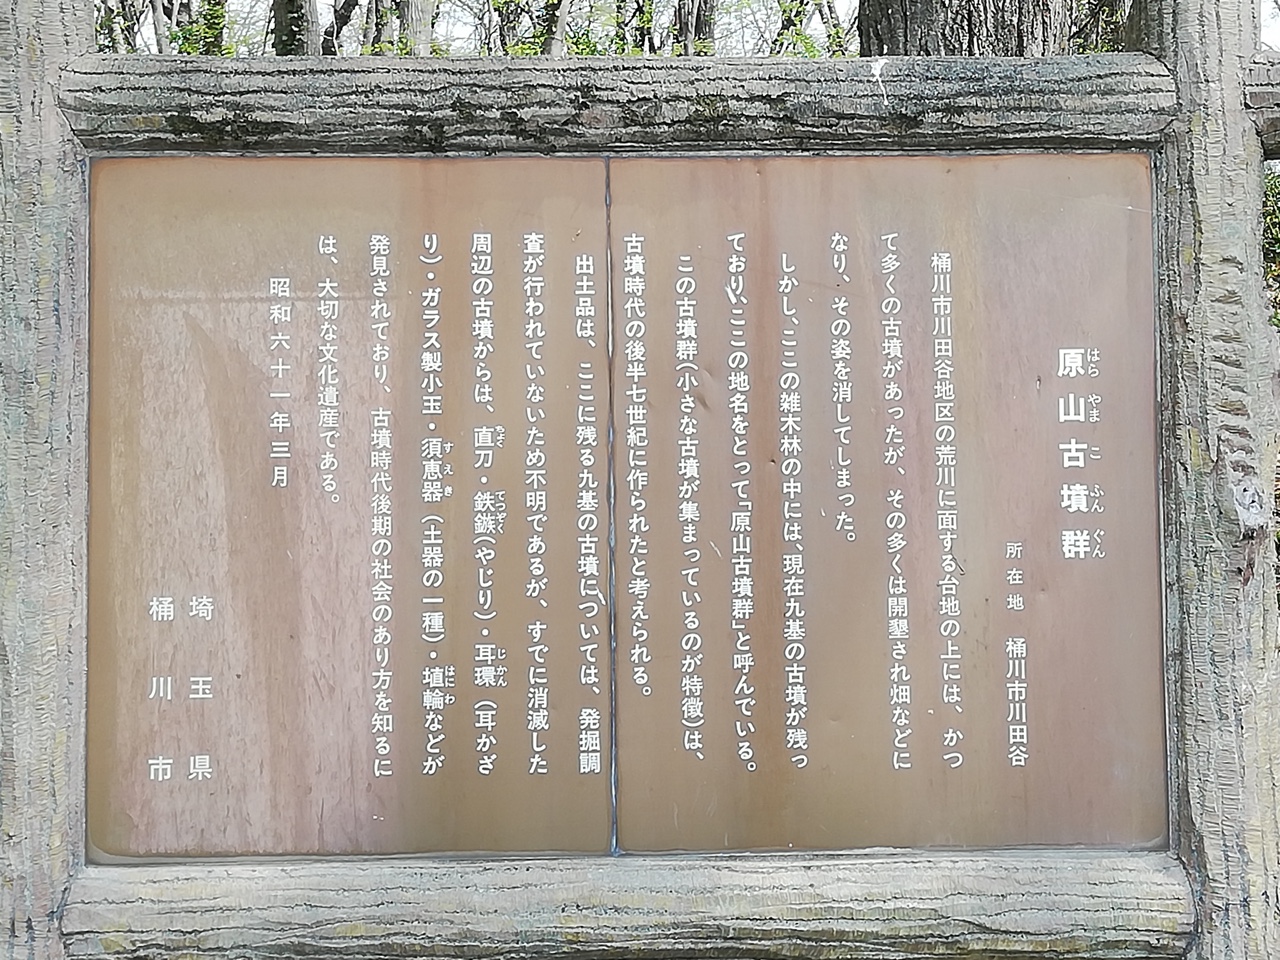 原山古墳群
はらやまこふんぐん
所在地　桶川市川田谷
桶川市川田谷地区の荒川に面する台地の上には、かつ
て多くの古墳があったが、その多くは開墾され畑などに
なり、その姿を消してしまった。
しかし、ここの雑木林の中には、現在九基の古墳が残っ
ており、ここの地名をとって「原山古墳群」と呼んでいる。
この古墳群(小さな古墳が集まっているのが特徴)は、
古墳時代の後半七世紀に作られたと考えられる。
出土品は、ここに残る九基の古墳については、発掘調
査が行われていないため不明であるが、すでに消滅した
周辺の古墳からは、直刀・鉄鏃(やじり)・耳環(耳かざ
ちょく　てつぞく　じかん
り)・ガラス製小玉・須恵器(土器の一種)・埴輪などが
すえき　はにわ
発見されており、古墳時代後期の社会のあり方を知るに
は、大切な文化遺産である。
昭和六十一年三月
埼玉県
桶川市